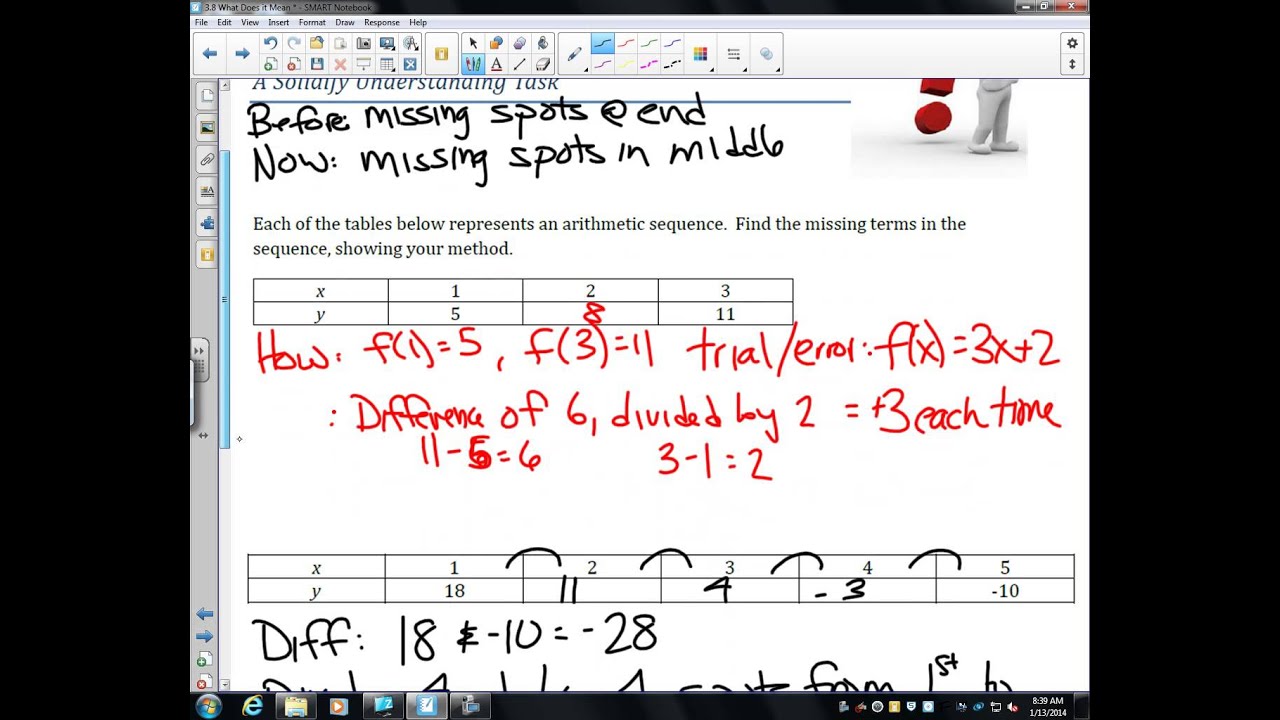 3.8 What Does it Mean * - SMART Notebook
File Edit View Insert Format Draw Response Help
A Solidify Understanding Task
Before: missing spots @ end
Now: missing spots in middle
Each of the tables below represents an arithmetic sequence. Find the missing terms in the
sequence, showing your method.
x 1 2 3
y 5 8 11
How: f(1)=5, f(3)=11 trial/error: f(x)=3x+2
: Difference of 6, divided by 2 = +3 each time
11-5=6 3-1=2
x 1 2 3 4 5
y 18 11 4 -3 -10
Diff: 18 & -10 = -28
4 spots from 1st to
8:39 AM
1/13/2014